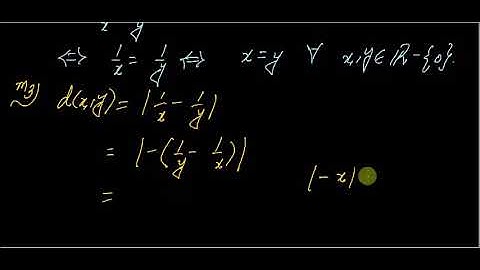 x y
⇔ 1/x = 1/y ⇔ x=y ∀ x,y∈ℝ-{0}.
m3) d(x,y) = |1/x - 1/y|
= |-(1/y - 1/x)|
= |-x|